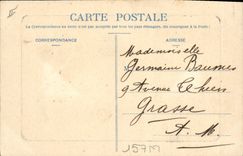 CARTE POSTALE
La Correspondance au recto n'est pas acceptée par tous les pays étrangers. (Se renseigner à la Poste)
CORRESPONDANCE
ADRESSE
Mademoiselle
Germaine Baumes
9 Avenue Thiers
Grasse
A. M.